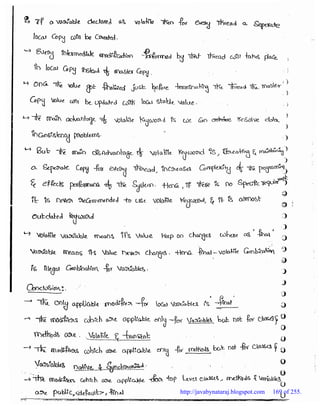 If a variable declared as volatile then for every Thread a separate
local copy will be created.
→ Every Intermediate modification performed by that Thread will takes place
in local copy instead of master copy.
→ Once the value got finalized just before terminating the Thread the master
copy value will be updated with local stable value.
→ The main advantage of volatile Keyword is we can resolve data
inconsistency problems.
→ But the main disadvantage of volatile Keyword is, creating & maintaining
a separate copy for every Thread, increases complexity of the programming
& effects performance of the system. Hence, if there is no specific requirement
it is never recommended to use volatile Keyword, & it is almost
outdated keyword
→ volatile variable means it's value keep on changes where as 'final'
variable means its value never changes. Hence final-volatile combination
is illegal combination for variables.
Conclusions:
→ The only applicable modifier for local variables is 'final'
→ The modifiers which are applicable only for variables but not for classes &
methods are volatile & transient
→ The modifiers which are applicable only for methods but not for classes &
variables native & synchronized
→ The modifiers which are applicable for top level classes, methods & variables
are public, <default>, final
http://javabynataraj.blogspot.com 169 of 255.